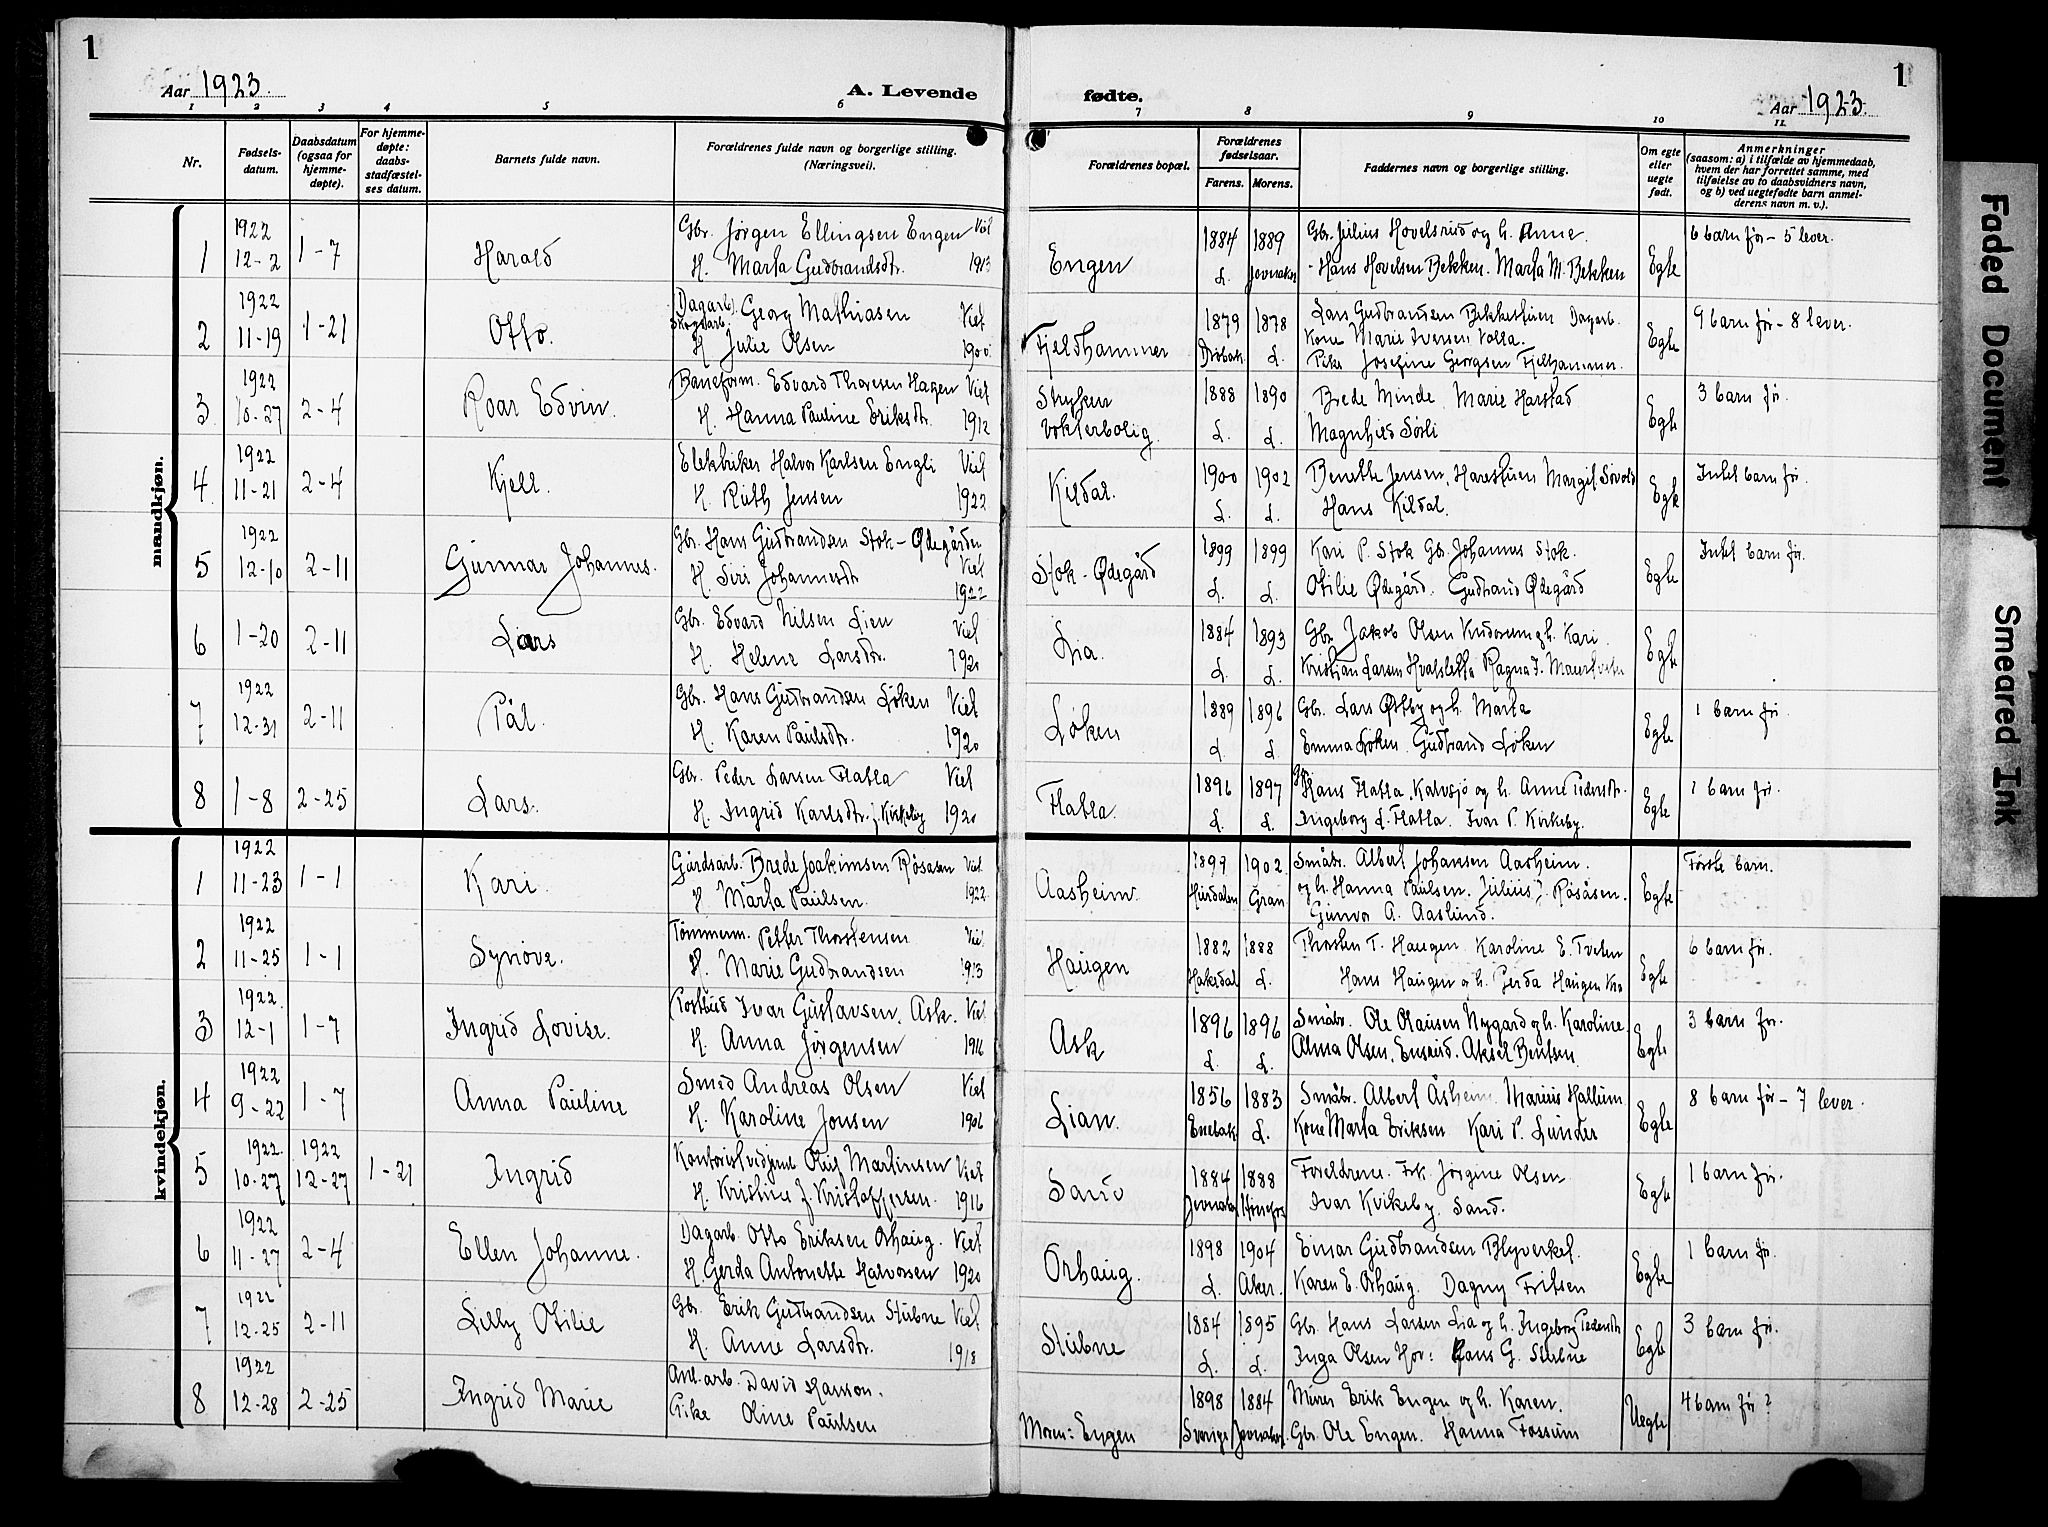 1
Aar 1923.
A. Levende
1 2 3 4 5 6
Nr.
Fødsels-
datum.
Daabsdatum
(ogsaa for
hjemme-
døpte).
For hjemme-
døpte:
daabs-
stadfæstel-
ses datum.
Barnets fulde navn.
Forældrenes fulde navn og borgerlige stilling.
(Næringsvei).
mandkjøn.
1922
1 12-2 1-7 Harald
Gbr. Jørgen Ellingsen Engen Viet
H. Marta Gudbrandsdtr. 1913
1922
2 11-19 1-21 Otto.
Dagarb. Georg Mathiasen Viet
Skogsarb.
H. Julie Olsen 1900
1922
3 10-27 2-4 Roar Edvin.
Baneform. Edvard Thoresen Hagen Viet
H. Hanna Pauline Eriksdtr. 1912
1922
4 11-21 2-4 Kjell.
Elektriker Halvor Karlsen Engli Viet
H. Ruth Jensen 1922
1922
5 12-10 2-11 Gunnar Johannes.
Gbr. Hans Gudbrandsen Stok-Ødegården
H. Siri Johannesdtr Viet
1922
6 1-20 2-11 Lars
Gbr. Edvard Nilsen Lien Viet
H. Helene Larsdtr. 1920
1922
7 12-31 2-11 Pål.
Gbr. Hans Gudbrandsen Løken Viet
H. Karen Paulsdtr. 1920
8 1-8 2-25 Lars.
Gbr. Peder Larsen Flatla Viet
H. Ingrid Karlsdtr. f. Kirkeby 1920
kvindekjøn.
1922
1 11-23 1-1 Kari.
Gårdsarb. Brede Joakimsen Råsåsen Viet
H. Marta Paulsen. 1922
1922
2 11-25 1-1 Synøve.
Tømmerm. Petter Thorstensen Viet
H. Marie Gudbrandsen 1913
1922
3 12-1 1-7 Ingrid Lovise.
Postbud Ivar Gustavsen. Ask. Viet
H. Anna Jørgensen 1916
1922
4 9-22 1-7 Anna Pauline
Smed Andreas Olsen Viet
H. Karoline Jonsen 1906
1922 1922
5 10-27 12-27 1-21 Ingrid
Kontorist Oluf Martinsen Viet
H. Kristine J. Kristoffersen. 1916
1922
6 11-27 2-4 Ellen Johanne.
Dagarb. Otto Eriksen Orhaug. Viet
H. Gerda Antonette Halvorsen 1920
1922
7 12-25 2-11 Lilly Otilie
Gbr. Erik Gudbrandsen Stubne Viet
H. Anne Larsdtr. 1918
1922
8 12-28 2-25 Ingrid Marie
Anl.arb. David Hanson.
Pike Oline Paulsen
1
Aar 1923.
fødte.
7 8 9 10 11.
Forældrenes bopæl.
Forældrenes
fødselsaar.
Farens. Morens.
Faddernes navn og borgerlige stilling.
Om egte
eller
uegte
født.
Anmerkninger
(saasom: a) i tilfælde av hjemmedaab,
hvem der har forrettet samme, med
tilføielse av to daabsvidners navn,
og b) ved uegtefødte barn anmel-
derens navn m. v.).
Engen 1884 1889 Gbr. Julius Hovelsrud og h. Anne. Egte 6 barn før - 5 lever.
d. Jevnaker Hans Hovelsen Bekken. Marta M. Bekken
Fjeldhammer 1879 1878 Lars Gudbrandsen Bekkestuen Dagarb. Egte 9 barn før - 8 lever.
Drøbak d. Kone Marie Iversen Volla.
Pike Josefine Georgsen Fjelhammer.
Stryken
vokterbolig. 1888 1890 Brede Minde. Marie Harstad Egte 3 barn før.
d. d. Magnhild Sørli
Kildal. 1900 1902 Benette Jensen, Harestuen Margit Egte Intet barn før.
d. d. Hans Kildal.
Stok-Ødegård 1899 1899 Kari P. Stok Gb. Johannes Stok. Egte Intet barn før.
d. d. Otilie Ødegård. Gudbrand Ødegård
Lia. 1884 1893 Gbr. Jakob Olsen og h. Kari. Egte
d. d. Kristian Larsen Hvalsletta Ragna J.
Løken 1889 1896 Gbr. Lars Østby og h. Marta Egte 1 barn før.
d. d. Emma Løken. Gudbrand Løken
Flatla. 1896 1897 Gbr. Hans Flatla, Kalvsjø og h. Anne Pedersdtr. Egte 1 barn før.
d. d. Ingeborg L. Flatla. Ivar P. Kirkeby.
Aasheim. 1899 1902 Småbr. Albert Johansen Aasheim. Egte Første barn.
Hurdalen Gran og h. Hanna Paulsen. Julius J. Råsåsen.
Gunvor A. Aaslund.
Haugen 1882 1888 Thorsten T. Haugen Karoline E. Tveten Egte 6 barn før.
Hakedal d. Hans Haugen og h. Gerda Haugen
Ask 1896 1896 Småbr. Ole Olausen Nygard og h. Karoline. Egte 3 barn før.
d. d. Alma Olsen, Ensrud. Aksel Bentsen
Lian. 1856 1883 Småbr. Albert Åsheim. Marius Hallum Egte 8 barn før - 7 lever.
Enebak d. Kone Marta Eriksen Kari P. Lunder
Sand 1884 1888 Foreldrene. Frk. Jørgine Olsen Egte 1 barn før.
Jevnaker Hønefos Ivar Kirkeby, Sand.
Orhaug. 1898 1904 Einar Gudbrandsen Blyverket. Egte 1 barn før.
d. Aker. Karen E. Orhaug. Dagny Fritsen
Stubne 1884 1895 Gbr. Hans Larsen Lia og h. Ingeborg Pedersdtr Egte 3 barn før.
d. d. Inga Olsen Hov: Hans G. Stubne
Moren: Engen 1898 1884 Murer Erik Engen og h. Karen. Uegte 4 barn før?
Sverige Jevnaker. Gbr. Ole Engen. Hanna Fossum
Faded Document
Smeared Ink